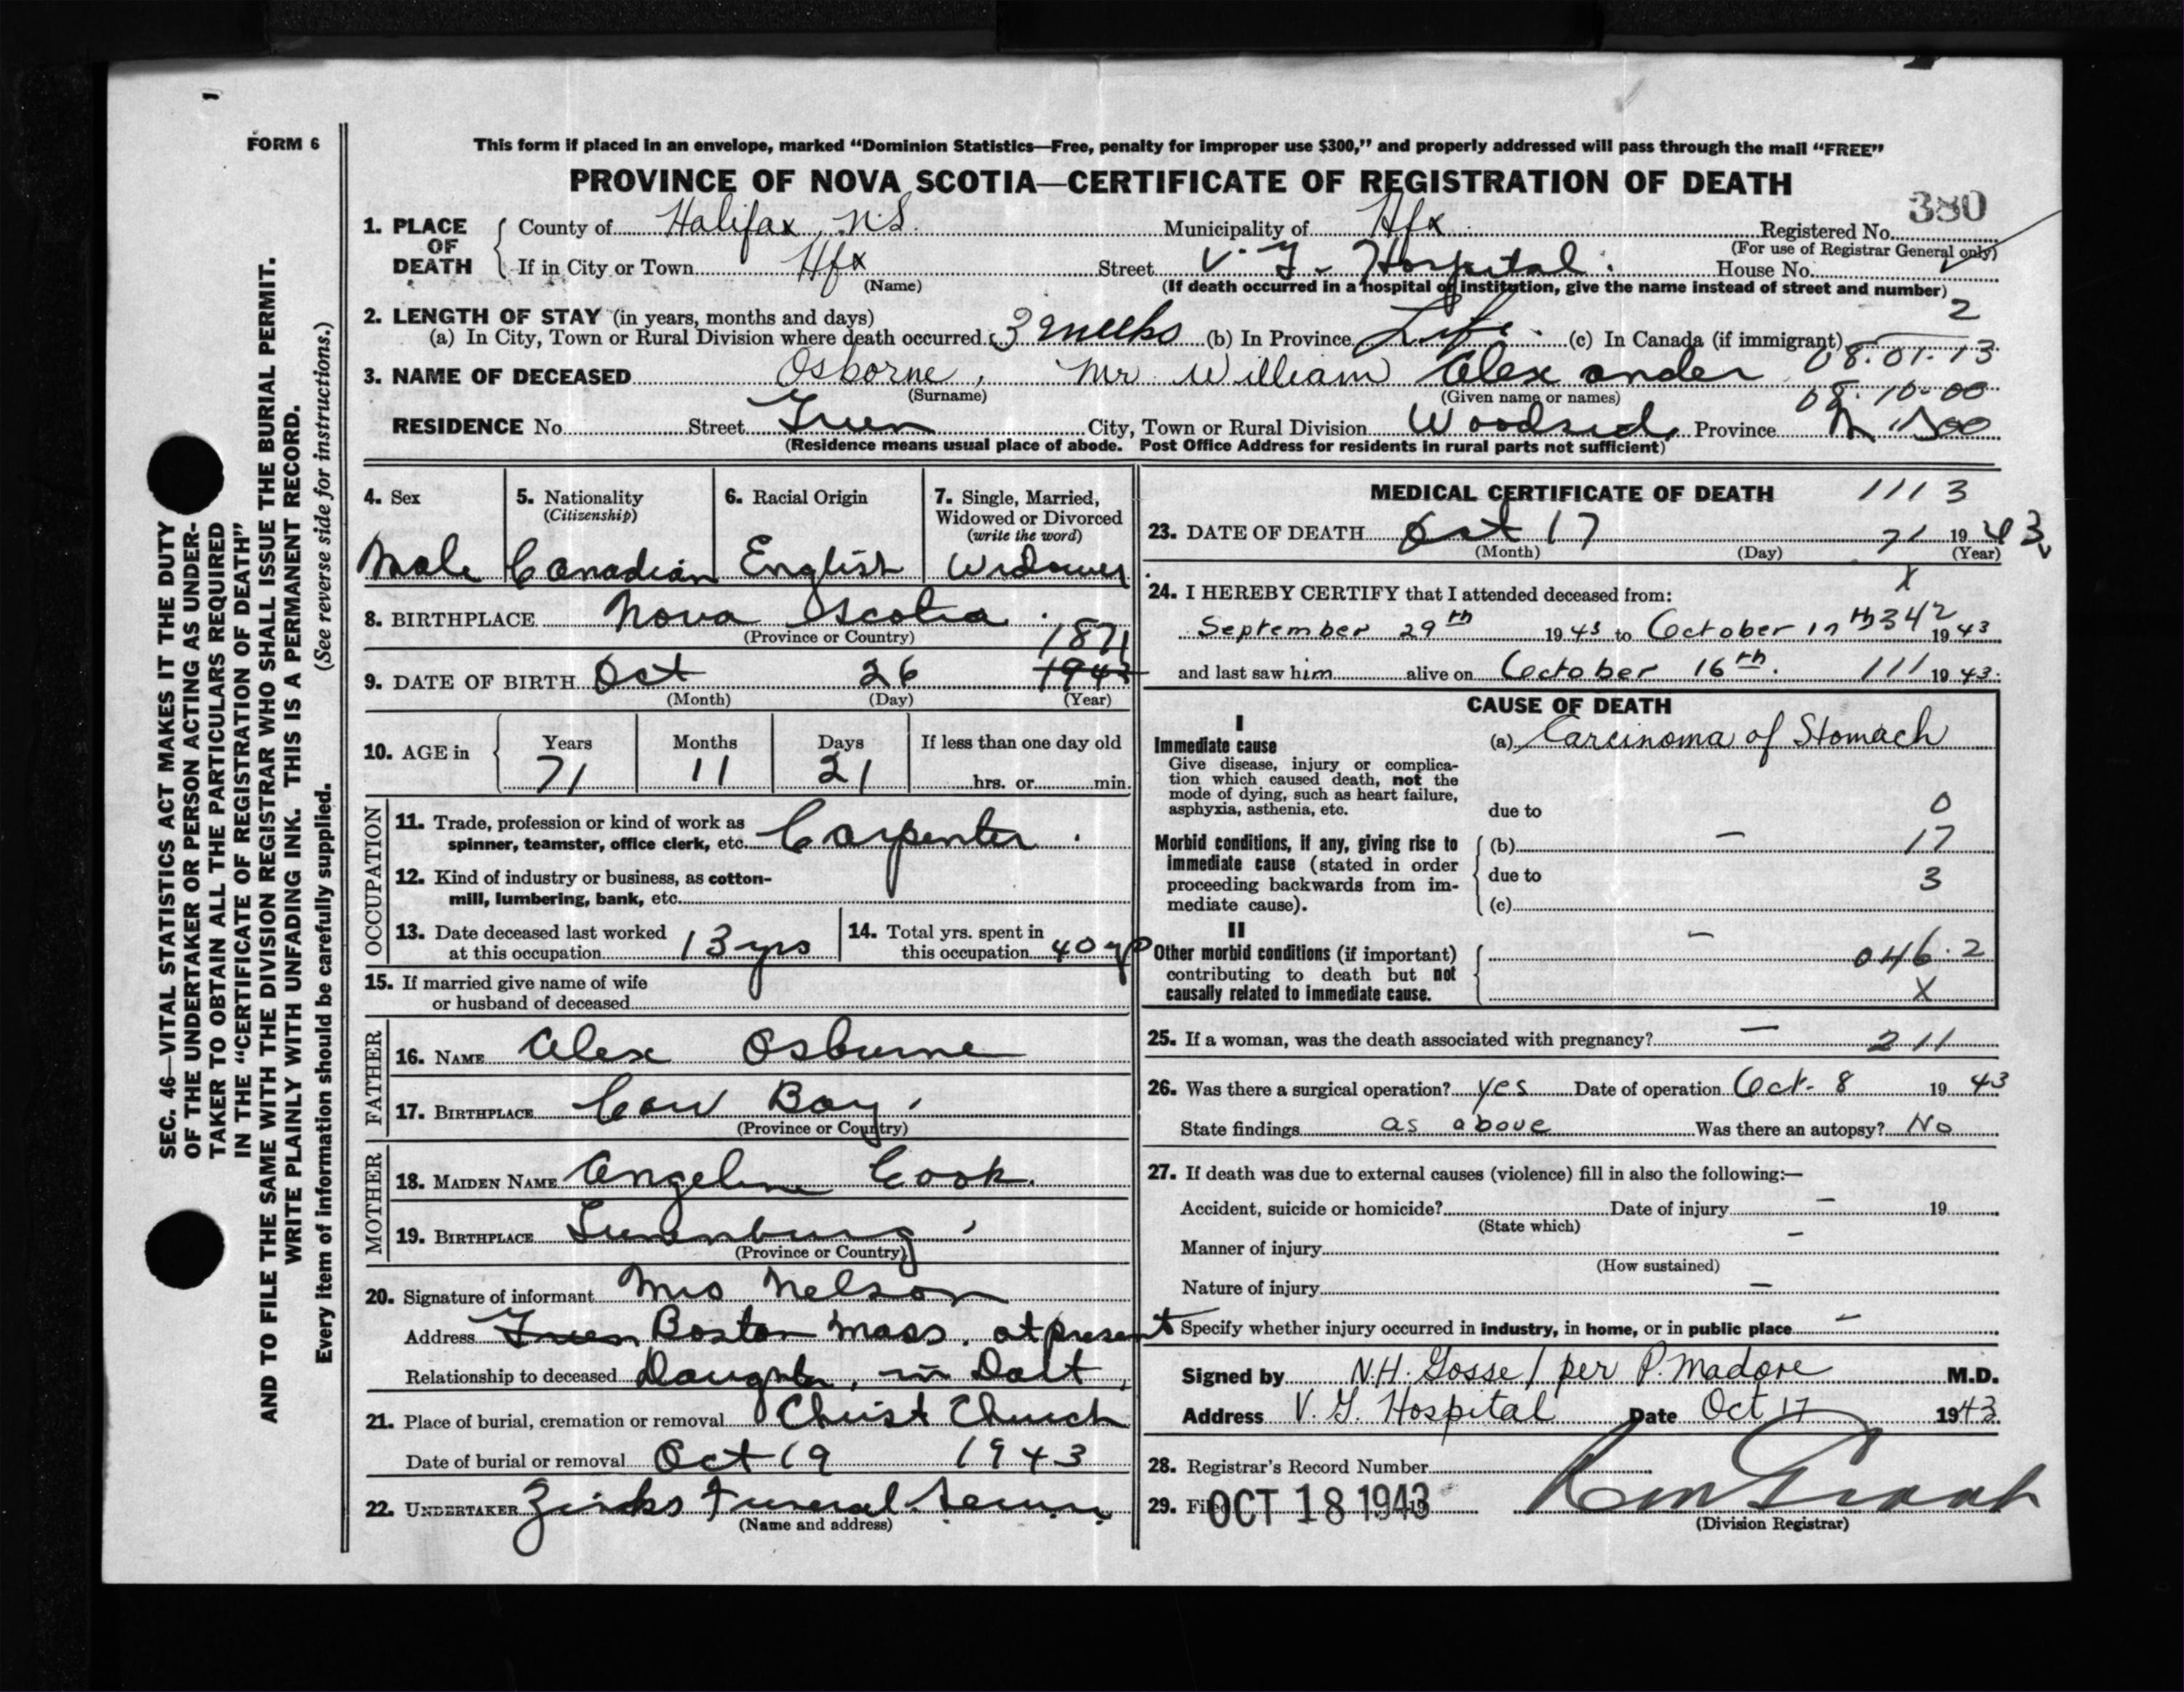 FORM 6
This form if placed in an envelope, marked “Dominion Statistics—Free, penalty for improper use $300,” and properly addressed will pass through the mail “FREE”
PROVINCE OF NOVA SCOTIA—CERTIFICATE OF REGISTRATION OF DEATH
380
1. PLACE OF DEATH County of Halifax, N.S. Municipality of Hfx Registered No.
(For use of Registrar General only)
If in City or Town Hfx Street V. G. Hospital. House No.
(Name) (If death occurred in a hospital or institution, give the name instead of street and number)
2
2. LENGTH OF STAY (in years, months and days)
(a) In City, Town or Rural Division where death occurred 3 weeks (b) In Province Life. (c) In Canada (if immigrant)
08.01.13
3. NAME OF DECEASED Osborne, Mr William Alexander
(Surname) (Given name or names)
08.10-00
RESIDENCE No. Street Green City, Town or Rural Division Woodside Province
(Residence means usual place of abode. Post Office Address for residents in rural parts not sufficient)
4. Sex Male
5. Nationality (Citizenship) Canadian
6. Racial Origin English
7. Single, Married, Widowed or Divorced (write the word) Widower
8. BIRTHPLACE Nova Scotia.
(Province or Country)
1871
9. DATE OF BIRTH Oct 26 1943
(Month) (Day) (Year)
10. AGE in Years 71 Months 11 Days 21 If less than one day old hrs. or min.
OCCUPATION
11. Trade, profession or kind of work as
spinner, teamster, office clerk, etc. Carpenter.
12. Kind of industry or business, as cotton-
mill, lumbering, bank, etc.
13. Date deceased last worked
at this occupation 13 yrs
14. Total yrs. spent in
this occupation 40 yr
15. If married give name of wife
or husband of deceased
FATHER
16. NAME Alex Osburne
17. BIRTHPLACE Cow Bay
(Province or Country)
MOTHER
18. MAIDEN NAME Angeline Cook.
19. BIRTHPLACE Lunenburg
(Province or Country)
20. Signature of informant Mrs Nelson
Address Green Boston Mass. at present
Relationship to deceased Daughter, in Dart,
21. Place of burial, cremation or removal Christ Church
Date of burial or removal Oct 19 1943
22. UNDERTAKER Zinks Funeral
(Name and address)
MEDICAL CERTIFICATE OF DEATH 1113
23. DATE OF DEATH Oct 17 71 1943
(Month) (Day) (Year)
X
24. I HEREBY CERTIFY that I attended deceased from:
September 29th 1943 to October 17th 342 1943
and last saw him alive on October 16th. 111 1943.
CAUSE OF DEATH
I
Immediate cause
Give disease, injury or complica-
tion which caused death, not the
mode of dying, such as heart failure,
asphyxia, asthenia, etc.
(a) Carcinoma of Stomach
due to 0
Morbid conditions, if any, giving rise to
immediate cause (stated in order
proceeding backwards from im-
mediate cause).
(b) — 17
due to 3
(c)
II
Other morbid conditions (if important)
contributing to death but not
causally related to immediate cause.
— 046.2
X
25. If a woman, was the death associated with pregnancy? — 211
26. Was there a surgical operation? yes Date of operation Oct-8 1943
State findings as above Was there an autopsy? No
27. If death was due to external causes (violence) fill in also the following:—
Accident, suicide or homicide? Date of injury — 19
(State which)
Manner of injury —
(How sustained)
Nature of injury —
Specify whether injury occurred in industry, in home, or in public place —
Signed by N.H. Gosse / per P. Madore M.D.
Address V. G. Hospital Date Oct 17 1943.
28. Registrar's Record Number
29. Filed OCT 18 1943
(Division Registrar)
SEC. 46—VITAL STATISTICS ACT MAKES IT THE DUTY
OF THE UNDERTAKER OR PERSON ACTING AS UNDER-
TAKER TO OBTAIN ALL THE PARTICULARS REQUIRED
IN THE “CERTIFICATE OF REGISTRATION OF DEATH”
AND TO FILE THE SAME WITH THE DIVISION REGISTRAR WHO SHALL ISSUE THE BURIAL PERMIT.
WRITE PLAINLY WITH UNFADING INK. THIS IS A PERMANENT RECORD.
Every item of information should be carefully supplied. (See reverse side for instructions.)